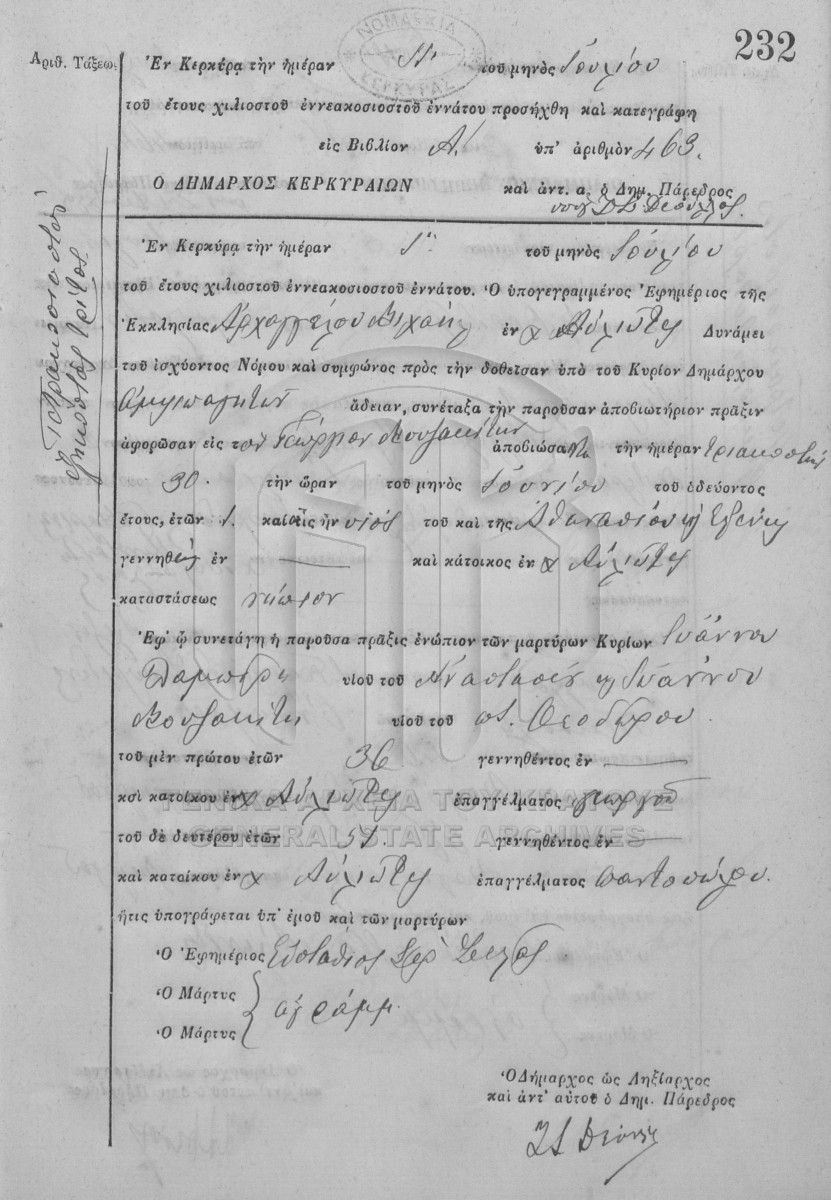 232
ΝΟΜΑΡΧΙΑ
ΚΕΡΚΥΡΑΣ
Ἀριθ. Τάξεως
Ἐν Κερκύρᾳ τὴν ἡμέραν τοῦ μηνὸς Ἰουλίου
τοῦ ἔτους χιλιοστοῦ ἐννεακοσιοστοῦ ἐννάτου προσήχθη καὶ κατεγράφη
εἰς Βιβλίον Α! ὑπ' ἀριθμὸν 463.
Ο ΔΗΜΑΡΧΟΣ ΚΕΡΚΥΡΑΙΩΝ καὶ ἀντ. α. ὁ Δημ. Πάρεδρος
Τετρακοσιοστὸς
ἑξηκοστὸς τρίτος
Ἐν Κερκύρᾳ τὴν ἡμέραν τοῦ μηνὸς Ἰουλίου
τοῦ ἔτους χιλιοστοῦ ἐννεακοσιοστοῦ ἐννάτου. Ὁ ὑπογεγραμμένος Ἐφημέριος τῆς
Ἐκκλησίας Ἀρχαγγέλου Μιχαὴλ ἐν χ Αὐλιῶτες Δυνάμει
τοῦ ἰσχύοντος Νόμου καὶ συμφώνως πρὸς τὴν δοθεῖσαν ὑπὸ τοῦ Κυρίου Δημάρχου
ἄδειαν, συνέταξα τὴν παροῦσαν ἀποβιωτήριον πρᾶξιν
ἀφορῶσαν εἰς τὸν Γεώργιον Κουζακίτην ἀποβιώσαντα τὴν ἡμέραν τριακοστὴν
30. τὴν ὥραν τοῦ μηνὸς Ἰουνίου τοῦ ὁδεύοντος
ἔτους, ἐτῶν 1. καὶ εἰς ἦν υἱὸς τοῦ καὶ τῆς Ἀθανασίου κ Ἑλένης
γεννηθεὶς ἐν — καὶ κάτοικος ἐν χ Αὐλιῶτες
καταστάσεως νήπιον
Ἐφ' ᾧ συνετάγη ἡ παροῦσα πρᾶξις ἐνώπιον τῶν μαρτύρων Κυρίων Ἰωάννου
υἱοῦ τοῦ Ἀναστασίου κ Ἰωάννου
Κουζακίτη υἱοῦ τοῦ ποτ. Θεοδώρου.
τοῦ μὲν πρώτου ἐτῶν 36 γεννηθέντος ἐν —
καὶ κατοίκου ἐν χ Αὐλιῶτες ἐπαγγέλματος γεωργοῦ
ΓΕΝΙΚΑ ΑΡΧΕΙΑ ΤΟΥ ΚΡΑΤΟΥΣ
GENERAL STATE ARCHIVES
τοῦ δὲ δευτέρου ἐτῶν 51. γεννηθέντος ἐν —
καὶ κατοίκου ἐν χ Αὐλιῶτες ἐπαγγέλματος παντοπώλου.
ἥτις ὑπογράφεται ὑπ' ἐμοῦ καὶ τῶν μαρτύρων
Ὁ Ἐφημέριος Εὐστάθιος Ἱερ
Ὁ Μάρτυς
ἀγράμμ.
Ὁ Μάρτυς
Ὁ Δήμαρχος ὡς Ληξίαρχος
καὶ ἀντ' αὐτοῦ ὁ Δημ. Πάρεδρος